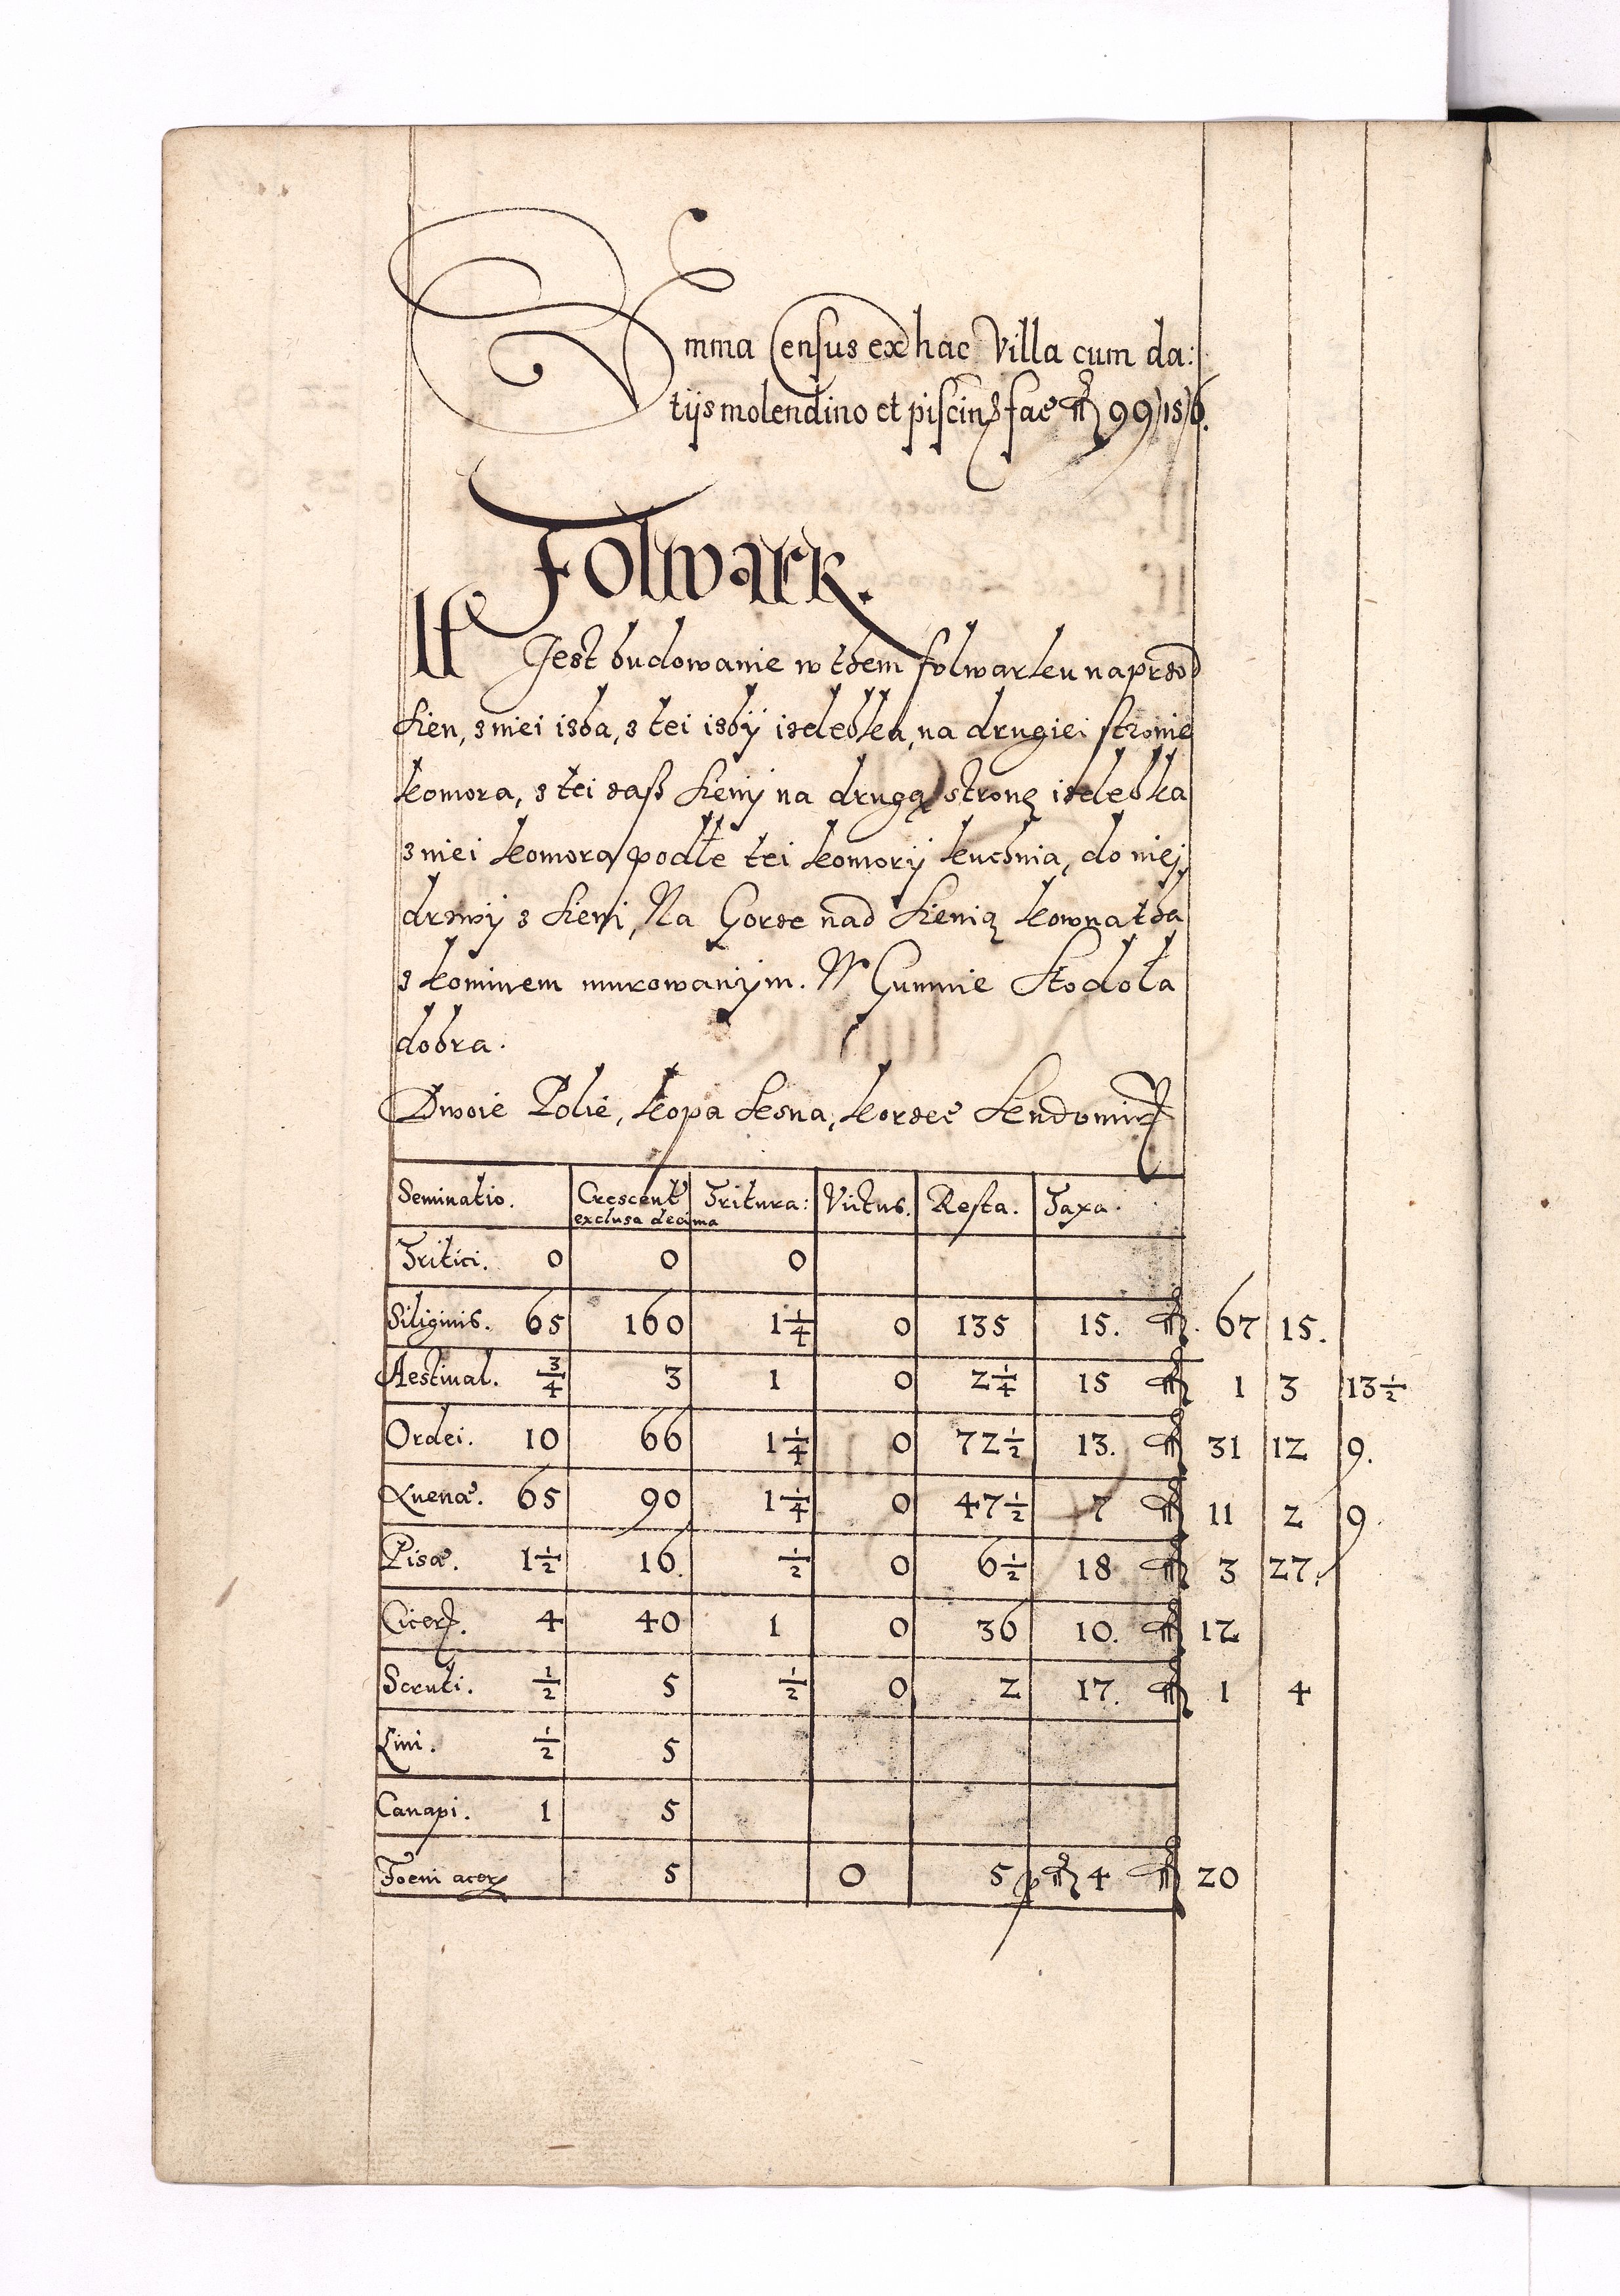 Summa Census ex hac Villa cum da:
tijs molendino et piscinis fac fl 99/15/6.
Folwark.
It Jest budowanie w them folwarku naprzod
Sien, z niei izba, z tei izbÿ izdebka, na drugiei stronie
komora, z tei zasz Sienÿ na drugą stronę izdebka
z niei komora podłe tei komorÿ kuchnia, do niej
drzwÿ z Sieni, Na Gorze nad Sienią kownatha
z kominem murowanÿm. W Gumnie Stodoła
dobra.
Dwoie Polie, kopa Lesna, korzec Sendomir
Seminatio. Crescent Tritura: Victus. Resta. Taxa.
exclusa decima
Tritici. 0 0 0
Siliginis. 65 160 1 1/4 0 135 15. fl. 67 15.
Aestiual. 3/4 3 1 0 2 1/4 15 fl 1 3 13 1/2
Ordei. 10 66 1 1/4 0 72 1/2 13. fl 31 12 9.
Auenæ. 65 90 1 1/4 0 47 1/2 7 fl 11 2 9
Pisæ. 1 1/2 16. 1/2 0 6 1/2 18 fl 3 27.
Cicer. 4 40 1 0 36 10. fl 12
Scruti. 1/2 5 1/2 0 2 17. fl 1 4
Lini. 1/2 5
Canapi. 1 5
Foeni acer 5 0 5 p fl 4 fl 20